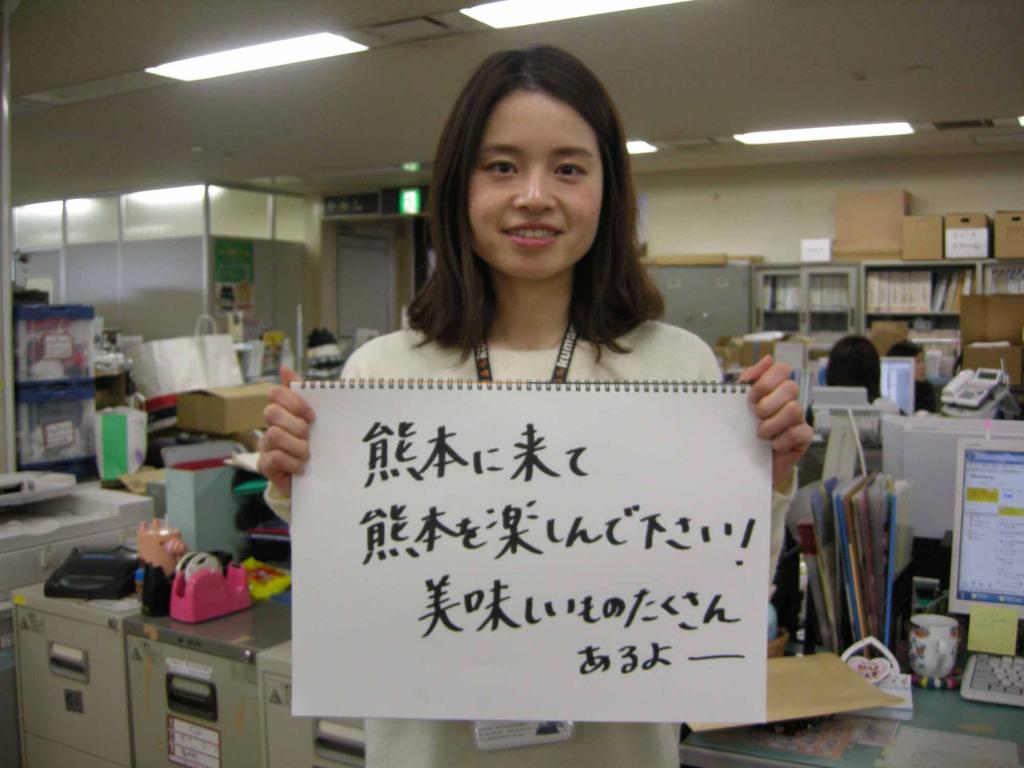 熊本に来て
熊本を楽しんで下さい!
美味しいものたくさん
あるよー